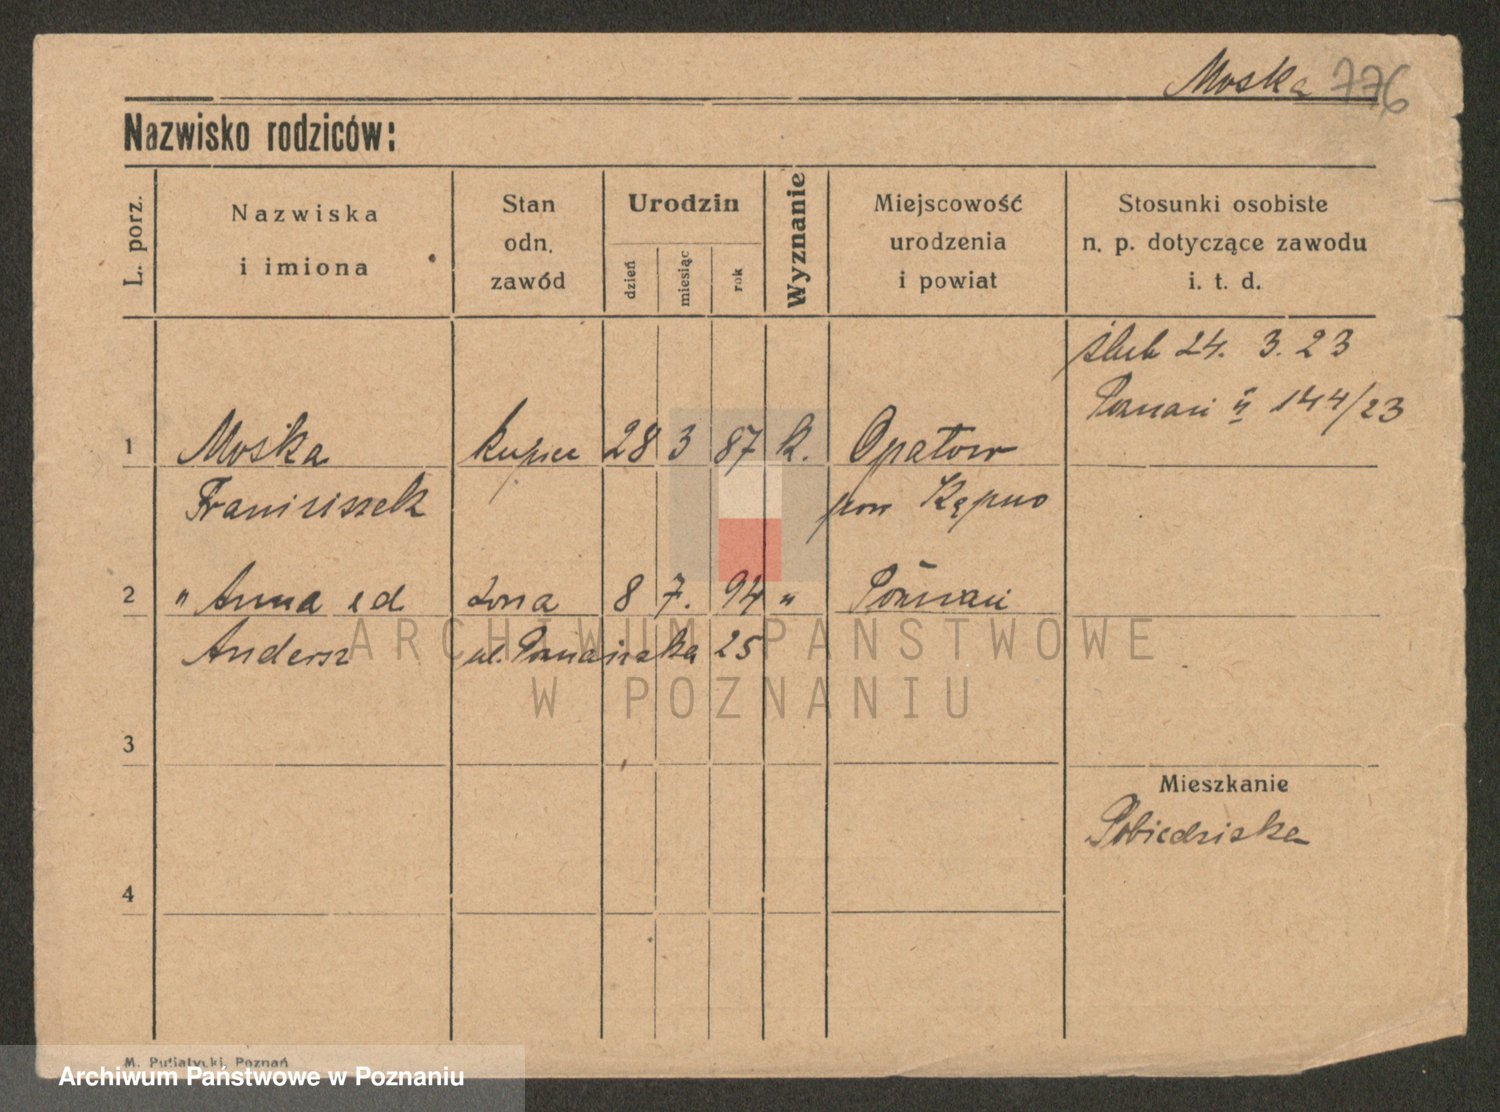 Moska 776
Nazwisko rodziców:
L. porz.
Nazwiska
i imiona
Stan
odn.
zawód
Urodzin
dzień
miesiąc
rok
Wyznanie
Miejscowość
urodzenia
i powiat
Stosunki osobiste
n. p. dotyczące zawodu
i. t. d.
ślub 24. 3. 23
Poznań II 144/23
1 Moska kupiec 28 3 87 k. Opatow
Franciszek pow Kępno
2 " Anna z d żona 8 7. 94 " Poznań
Andersz ul. Poznańska 25
ARCHIWUM PAŃSTWOWE
W POZNANIU
3
Mieszkanie
Pobiedziska
4
M. Putiatycki, Poznań
Archiwum Państwowe w Poznaniu